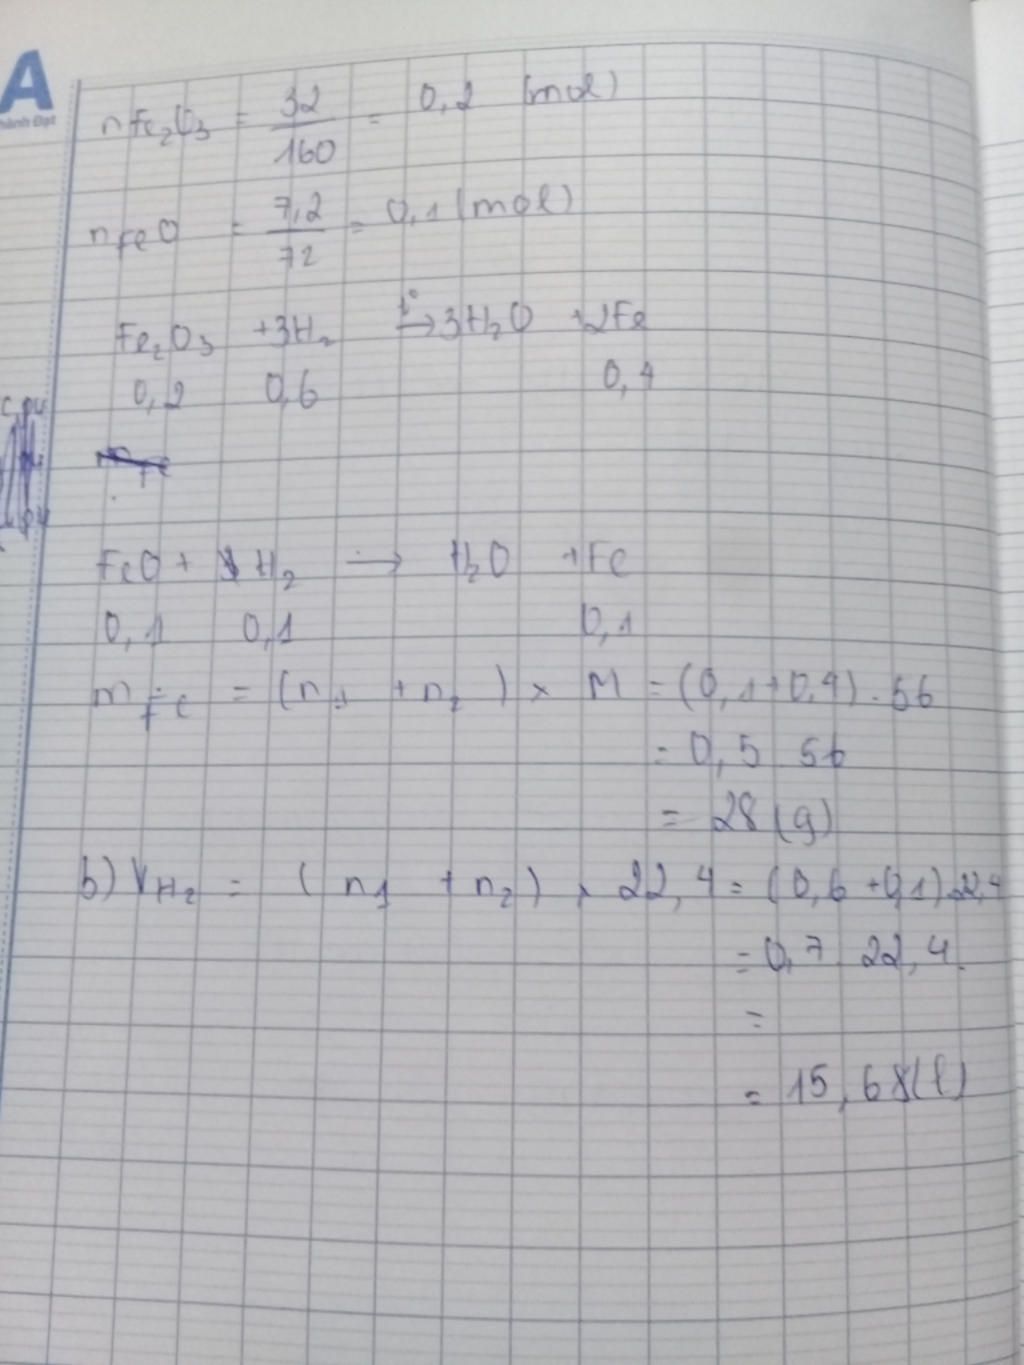 A
hành Đạt
nFe₂O₃ = 32/160 = 0,2 (mol)
nFeO = 7,2/72 = 0,1 (mol)
Fe₂O₃ +3H₂ t°→ 3H₂O +2Fe
0,2 0,6 0,4
FeO + H₂ → H₂O +Fe
0,1 0,1 0,1
mFe = (n₁ + n₂) × M = (0,1+0,4).56
= 0,5 56
= 28 (g)
b) VH₂ = (n₁ + n₂) × 22,4 = (0,6 +0,1).22,4
= 0,7 22,4
=
= 15,68(l)